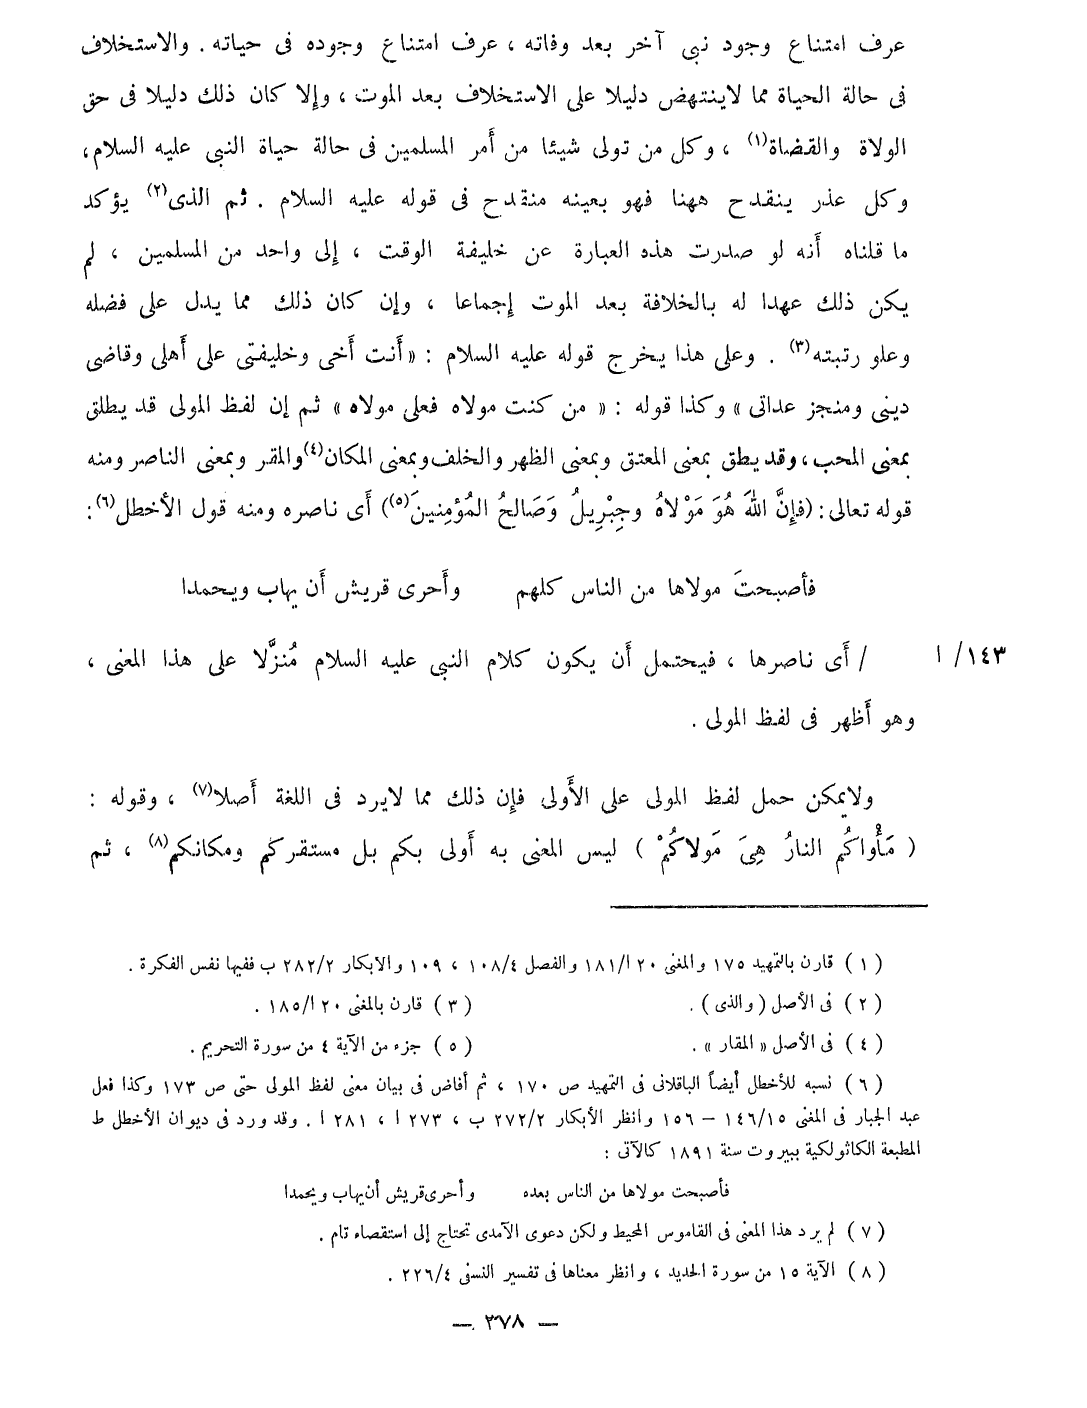 عرف امتناع وجود نبى آخر بعد وفاته ، عرف امتناع وجوده فى حياته . والاستخلاف
فى حالة الحياة مما لاينتهض دليلا على الاستخلاف بعد الموت ، وإلا كان ذلك دليلا فى حق
الولاة والقضاة(١) ، وكل من تولى شيئا من أَمر المسلمين فى حالة حياة النبى عليه السلام،
وكل عذر ينقدح ههنا فهو بعينه منقدح فى قوله عليه السلام . ثم الذى(٢) يؤكد
ما قلناه أَنه لو صدرت هذه العبارة عن خليفة الوقت ، إلى واحد من المسلمين ، لم
يكن ذلك عهدا له بالخلافة بعد الموت إجماعا ، وإن كان ذلك مما يدل على فضله
وعلو رتبته(٣) . وعلى هذا يخرج قوله عليه السلام : « أَنت أَخى وخليفتى على أَهلى وقاضى
دينى ومنجز عداتى » وكذا قوله : « من كنت مولاه فعلى مولاه » ثم إن لفظ المولى قد يطلق
بمعنى المحب ، وقد يطق بمعنى المعتق وبمعنى الظهر والخلف وبمعنى المكان(٤) والمقر وبمعنى الناصر ومنه
قوله تعالى : (فإنَّ اللهَ هُوَ مَوْلاهُ وجِبْرِيلُ وَصَالحُ المُؤمِنينَ(٥)) أَى ناصره ومنه قول الأخطل(٦) :
فأصبحتَ مولاها من الناس كلهم وأَحرى قريش أَن يهاب ويحمدا
١٤٣/ ا / أَى ناصرها ، فيحتمل أَن يكون كلام النبى عليه السلام مُنزَّلا على هذا المعنى ،
وهو أَظهر فى لفظ المولى .
ولايمكن حمل لفظ المولى على الأَولى فإن ذلك مما لايرد فى اللغة أَصلا(٧) ، وقوله :
( مَأْواكُم النارُ هِىَ مَولاكُمْ ) ليس المعنى به أَولى بكم بل مستقركم ومكانكم(٨) ، ثم
( ١ ) قارن بالتمهيد ١٧٥ والمغنى ٢٠ ا/١٨١ والفصل ١٠٨/٤ ، ١٠٩ والابكار ٢٨٢/٢ ب ففيها نفس الفكرة .
( ٢ ) فى الأصل ( والذى ) . ( ٣ ) قارن بالمغنى ٢٠ ا/١٨٥ .
( ٤ ) فى الأصل « المقار » . ( ٥ ) جزء من الآية ٤ من سورة التحريم .
( ٦ ) نسبه للأخطل أيضاً الباقلانى فى التمهيد ص ١٧٠ ، ثم أفاض فى بيان معنى لفظ المولى حتى ص ١٧٣ وكذا فعل
عبد الجبار فى المغنى ١٤٦/١٥ – ١٥٦ وانظر الأبكار ٢٧٢/٢ ب ، ٢٧٣ ا ، ٢٨١ ا . وقد ورد فى ديوان الأخطل ط
المطبعة الكاثولكية ببيروت سنة ١٨٩١ كالآتى :
فأصبحت مولاها من الناس بعده وأحرى قريش أن يهاب ويحمدا
( ٧ ) لم يرد هذا المعنى فى القاموس المحيط ولكن دعوى الآمدى تحتاج إلى استقصاء تام .
( ٨ ) الآية ١٥ من سورة الحديد ، وانظر معناها فى تفسير النسفى ٢٢٦/٤ .
— ٣٧٨ —